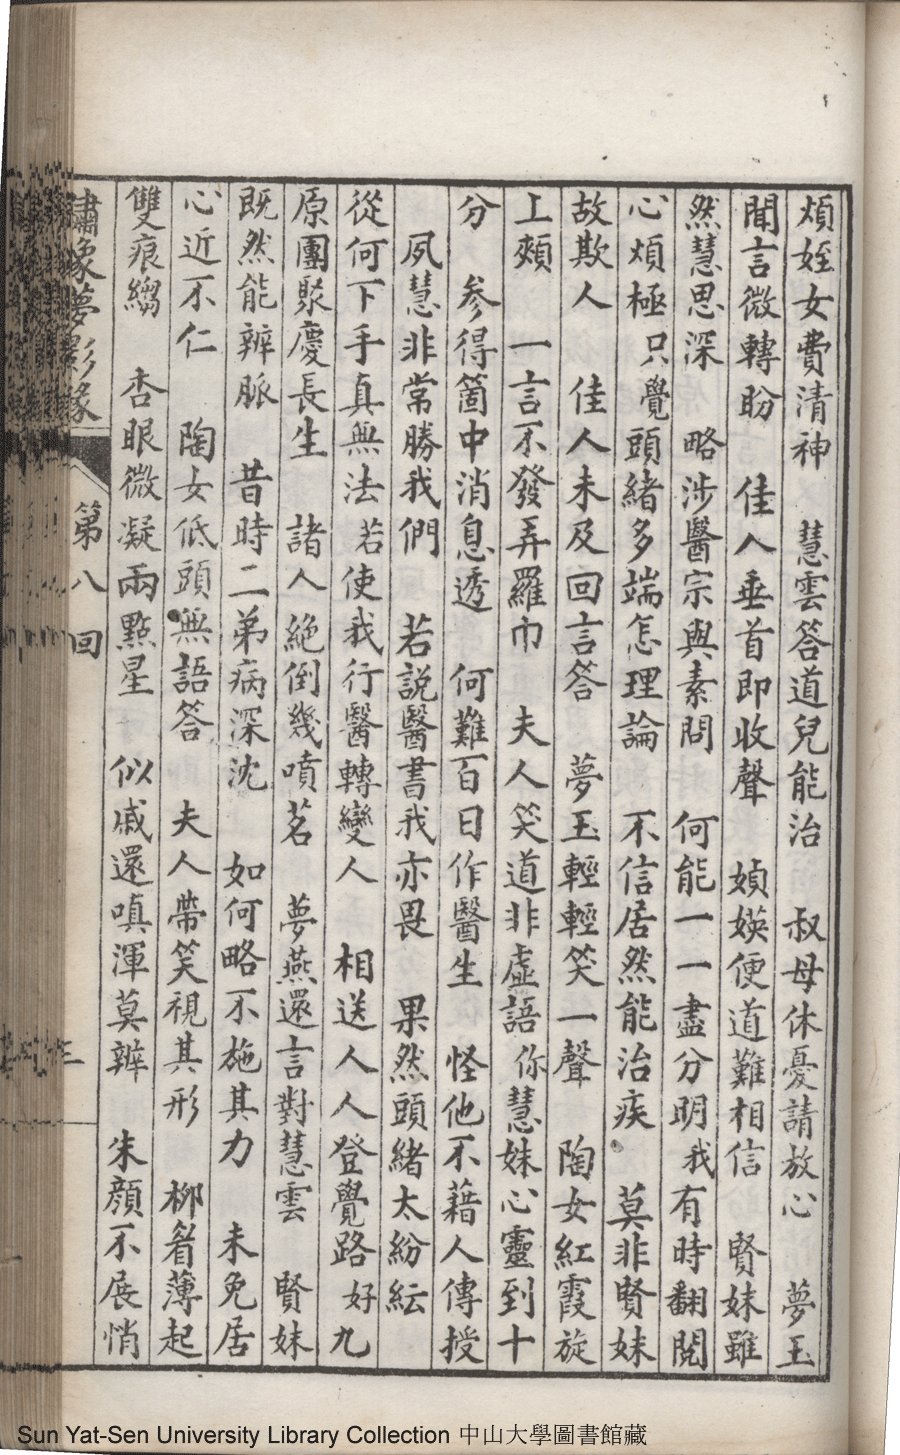 煩姪女費清神　慧雲答道兒能治　叔母休憂請放心　夢玉
聞言微轉盼　佳人垂首即收聲　媜媖便道難相信　賢妹雖
然慧思深　略涉醫宗與素問　何能一一盡分明　我有時翻閱
心煩極　只覺頭緒多端怎理論　不信居然能治疾　莫非賢妹
故欺人　佳人未及回言答　夢玉輕輕笑一聲　陶女紅霞旋
上頰　一言不發弄羅巾　夫人笑道非虛語　你慧妹心靈到十
分　參得箇中消息透　何難百日作醫生　怪他不藉人傳授
夙慧非常勝我們　若說醫書我亦畏　果然頭緒太紛紜
從何下手真無法　若使我行醫轉變人　相送人人登覺路　好九
原團聚慶長生　諸人絕倒幾噴茗　夢燕還言對慧雲　賢妹
既然能辨脈　昔時二弟病深沈　如何略不施其力　未免居
心近不仁　陶女低頭無語答　夫人帶笑視其形　柳眉薄起
雙痕縐　杏眼微凝兩點星　似戚還嗔渾莫辨　朱顏不展悄
繡像夢影緣　第八回　三
Sun Yat-Sen University Library Collection 中山大學圖書館藏